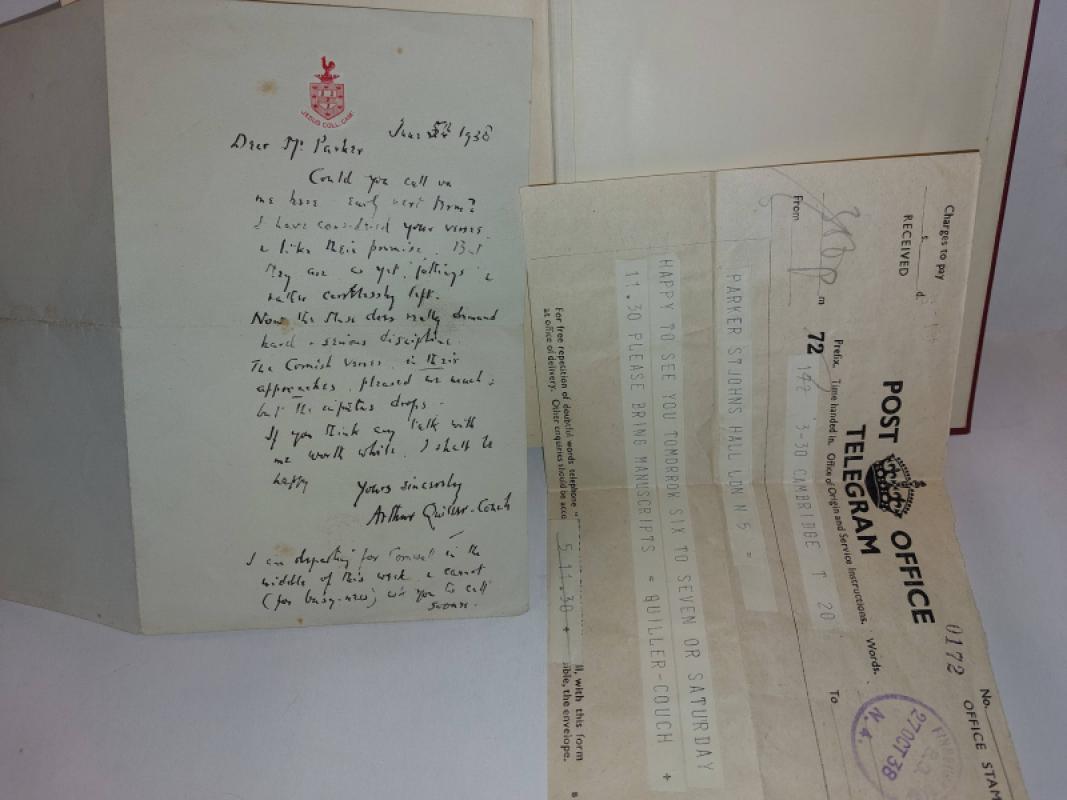 JESUS COLL. CAMB.
June 5th 1938
Dear Mr Parker
Could you call on
me here early next term?
I have considered your verses
& like their promise. But
they are as yet jottings &
rather carelessly left.
Now the Muse does really demand
hard & serious discipline.
The Cornish verses, in their
approaches, pleased me much:
but the drops.
If you think any talk with
me worth while, I shall be
happy
Yours sincerely
Arthur Quiller-Couch
I am departing for Cornwall in the
middle of this week & cannot
(for busy-ness) you to call
sooner.
Charges to pay
s. d.
RECEIVED
POST OFFICE
TELEGRAM
No.
0172
OFFICE STAM
27 OCT 38
N.4.
Prefix. Time handed in. Office of Origin and Service Instructions. Words.
From
m
To
72
3-30 CAMBRIDGE T 20
PARKER ST JOHNS HALL LDN N 5 =
HAPPY TO SEE YOU TOMORROW SIX TO SEVEN OR SATURDAY
11.30 PLEASE BRING MANUSCRIPTS = QUILLER-COUCH +
5 11.30 +
For free repetition of doubtful words telephone "
ll, with this form
at office of delivery. Other enquiries should be acco
ible, the envelope.
B